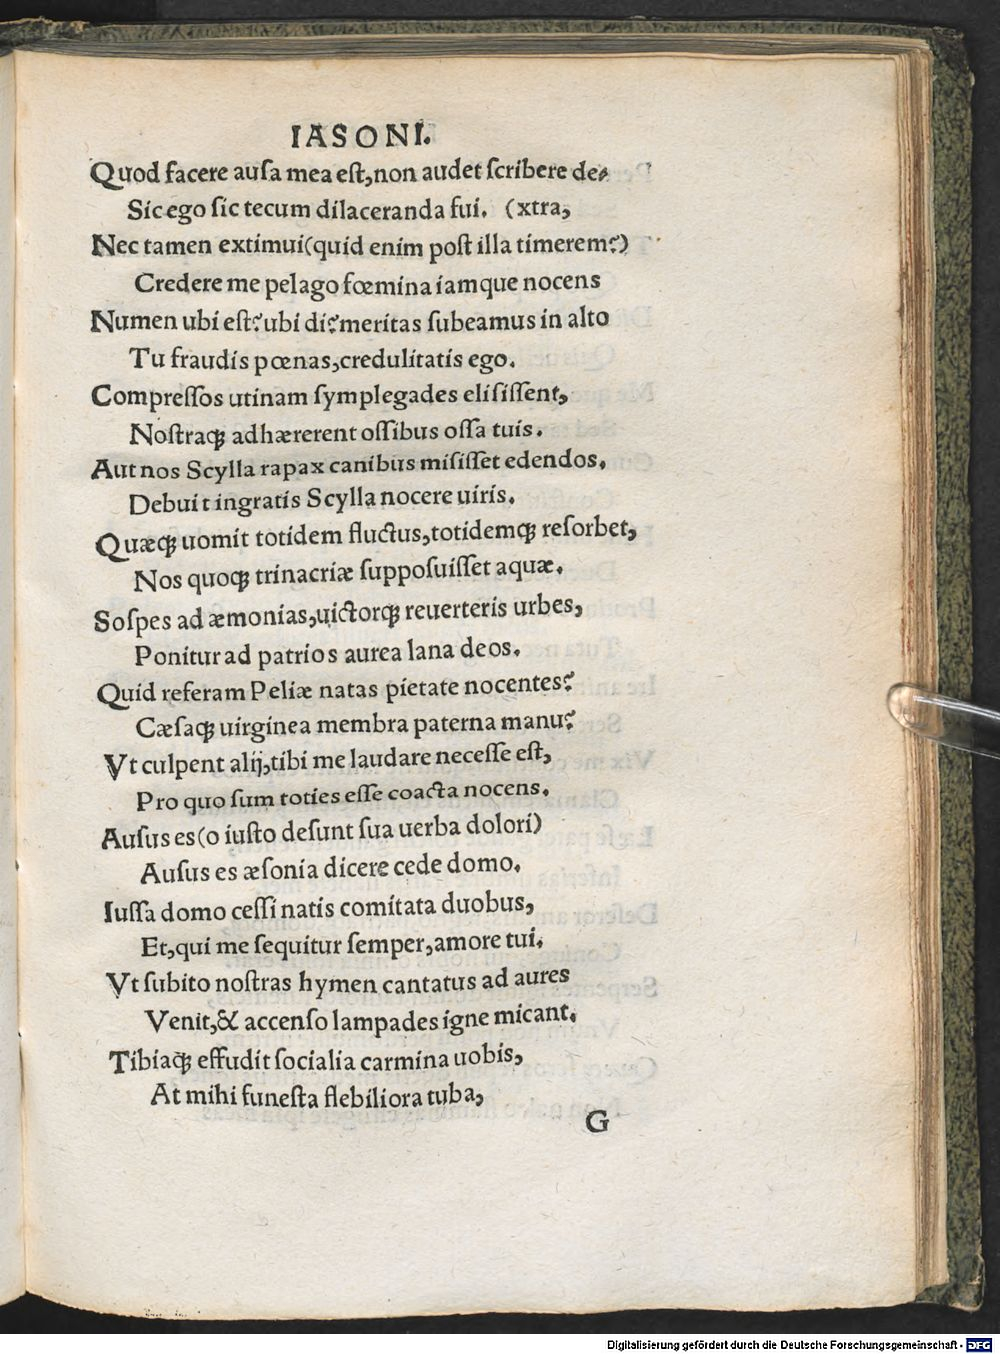 IASONI.
Quod facere auſa mea eſt,non audet ſcribere de-
Sic ego ſic tecum dilaceranda fui. (xtra,
Nec tamen extimui(quid enim poſt illa timerem?)
Credere me pelago fœmina iamque nocens
Numen ubi eſt?ubi di?meritas ſubeamus in alto
Tu fraudis pœnas,credulitatis ego.
Compreſſos utinam ſymplegades eliſiſſent,
Noſtraqꝫ adhærerent oſſibus oſſa tuis.
Aut nos Scylla rapax canibus miſiſſet edendos.
Debuit ingratis Scylla nocere uiris.
Quæqꝫ uomit totidem fluctus,totidemqꝫ reſorbet,
Nos quoqꝫ trinacriæ ſuppoſuiſſet aquæ.
Soſpes ad æmonias,uictorqꝫ reuerteris urbes,
Ponitur ad patrios aurea lana deos.
Quid referam Peliæ natas pietate nocentes?
Cæſaqꝫ uirginea membra paterna manu?
Vt culpent alij,tibi me laudare neceſſe eſt,
Pro quo ſum toties eſſe coacta nocens.
Auſus es(o iuſto deſunt ſua uerba dolori)
Auſus es æſonia dicere cede domo.
Iuſſa domo ceſſi natis comitata duobus,
Et,qui me ſequitur ſemper,amore tui.
Vt ſubito noſtras hymen cantatus ad aures
Venit,& accenſo lampades igne micant.
Tibiaqꝫ effudit ſocialia carmina uobis,
At mihi funeſta flebiliora tuba,
G
Digitalisierung gefördert durch die Deutsche Forschungsgemeinschaft - DFG